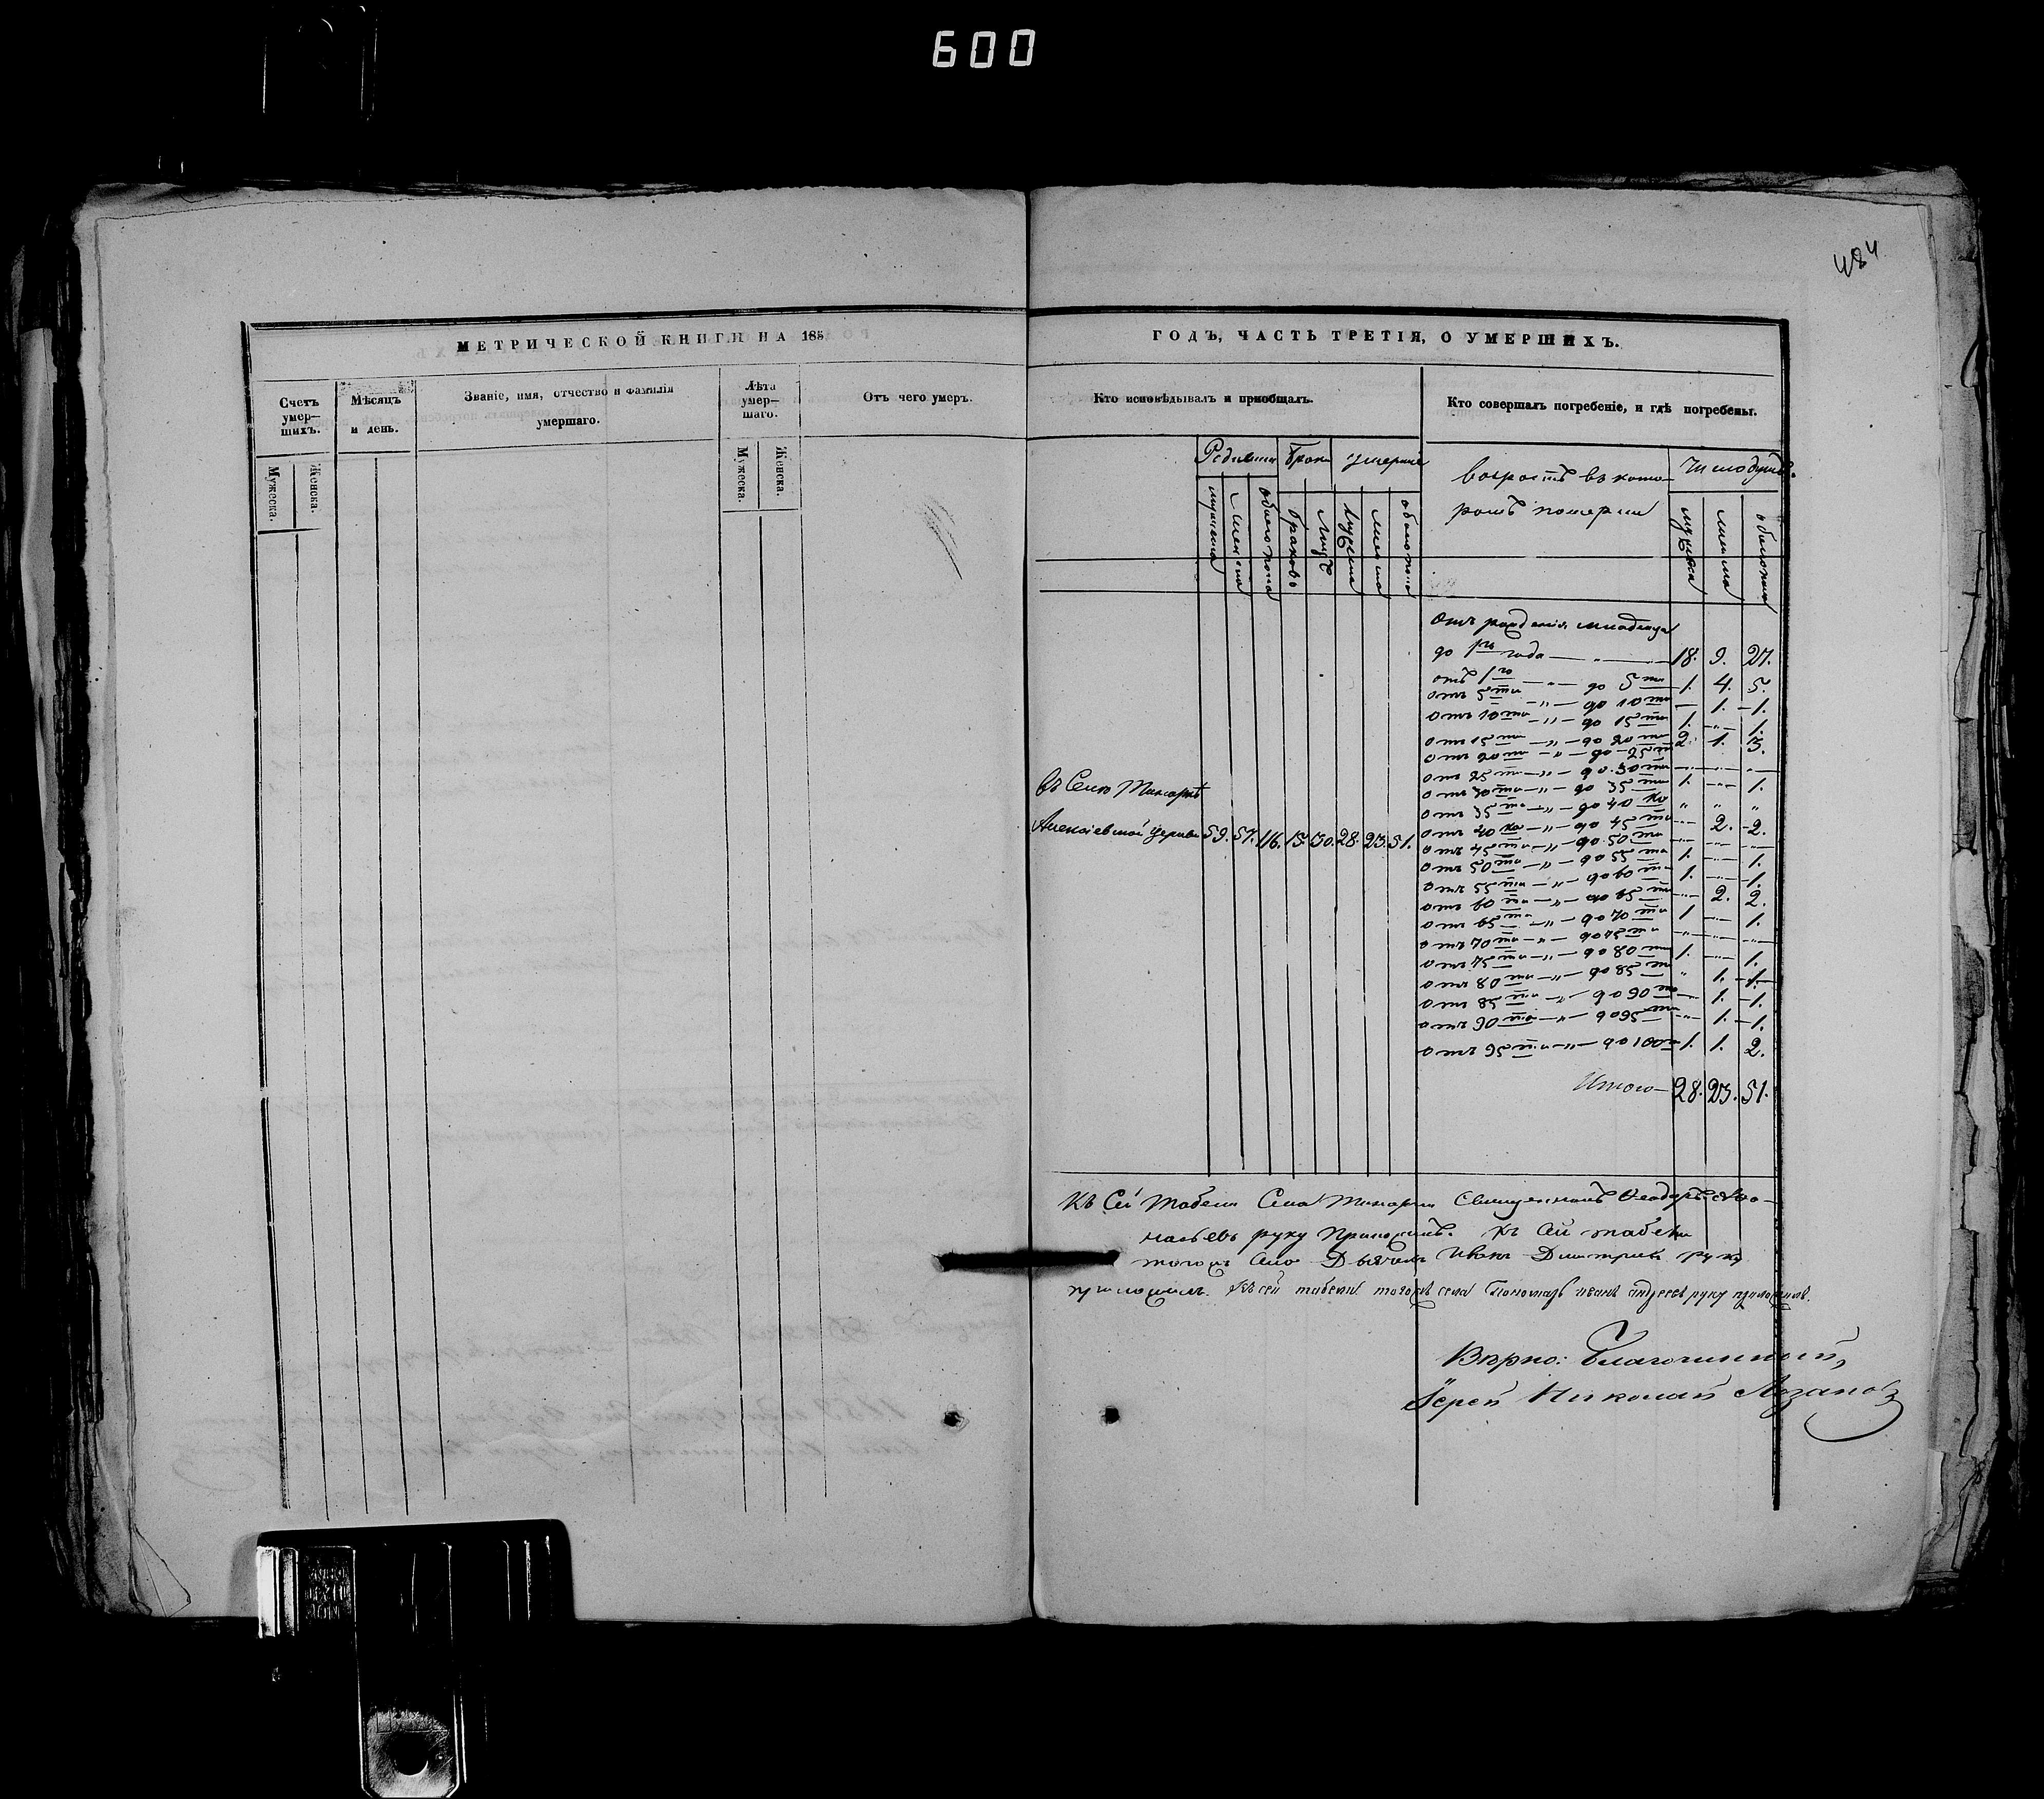 600
484
МЕТРИЧЕСКОЙ КНИГИ НА 185
ГОДЪ, ЧАСТЬ ТРЕТІЯ, О УМЕРШИХЪ.
Счетъ умер-шихъ.
Мѣсяцъ и день.
Званіе, имя, отчество и фамилія умершаго.
Лѣта умер-шаго.
Отъ чего умеръ.
Кто исповѣдывалъ и приобщалъ.
Кто совершалъ погребеніе, и гдѣ погребены.
Мужеска.
Женска.
Мужеска.
Женска.
браковъ
возрастъ въ кото-
ромъ померли
отъ рожденія младенца
до 1го года — „ — 18. 9. 27.
отъ 1го — „ — до 5ти 1. 4. 5.
отъ 5ти — „ — до 10ти — 1. 1.
отъ 10ти — „ — до 15ти 1. — 1.
отъ 15ти — „ — до 20ти 2. 1. 3.
отъ 20ти — „ — до 25ти
отъ 25ти — „ — до 30ти
отъ 30ти — „ — до 35ти 1. — 1.
отъ 35ти — „ — до 40ко „ „ „
отъ 40ко — „ — до 45ти — 2. 2.
отъ 45ти — „ — до 50ти
отъ 50ти — „ — до 55ти 1. — 1.
отъ 55ти — „ — до 60ти 1. — 1.
отъ 60ти — „ — до 65ти — 2. 2.
отъ 65ти — „ — до 70ти 1 — 1.
отъ 70ти — „ — до 75ти
отъ 75ти — „ — до 80ти 1. — 1.
отъ 80ти — „ — до 85ти „ 1. 1.
отъ 85ти — „ — до 90то — 1. 1.
отъ 90то — „ — до 95ти — 1. 1.
отъ 95ти — „ — до 100 1. 1. 2.
Итого — 28. 23. 51.
въ Селѣ
церкви 59. 57. 116. 15. 30. 28. 23. 51.
Къ Сей Табели Села Священникъ Ѳеодоръ
руку приложилъ. Къ сей табели
тогожъ села Дьячекъ Иванъ Дмитріевъ руку
приложилъ. Къ сей табели тогожъ села Пономарь иванъ андреевъ руку приложилъ.
Вѣрно: Благочинной,
Іерей Николай Лозановъ